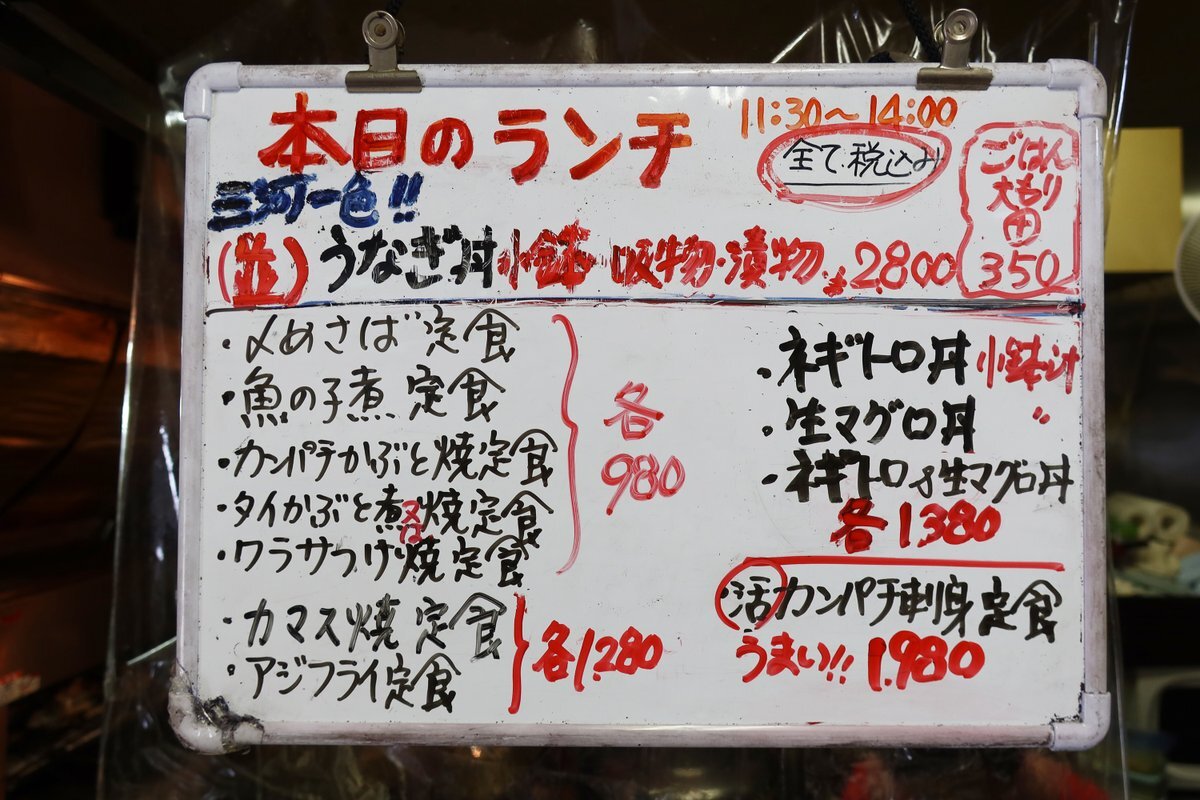 本日のランチ
11:30～14:00
全て税込み
ごはん
大もり
田
350
三河一色!!
(並)うなぎ丼 小鉢 吸物・漬物 ¥2800
・〆めさば定食
・魚の子煮 定食
・カンパチかぶと焼定食
・タイかぶと煮又は焼定食
・ワラサつけ焼定食
各
980
・カマス焼定食
・アジフライ定食
各1.280
・ネギトロ丼 小鉢汁
・生マグロ丼 〃
・ネギトロ&生マグロ丼
各1380
・活カンパチ刺身定食
うまい!! 1.980